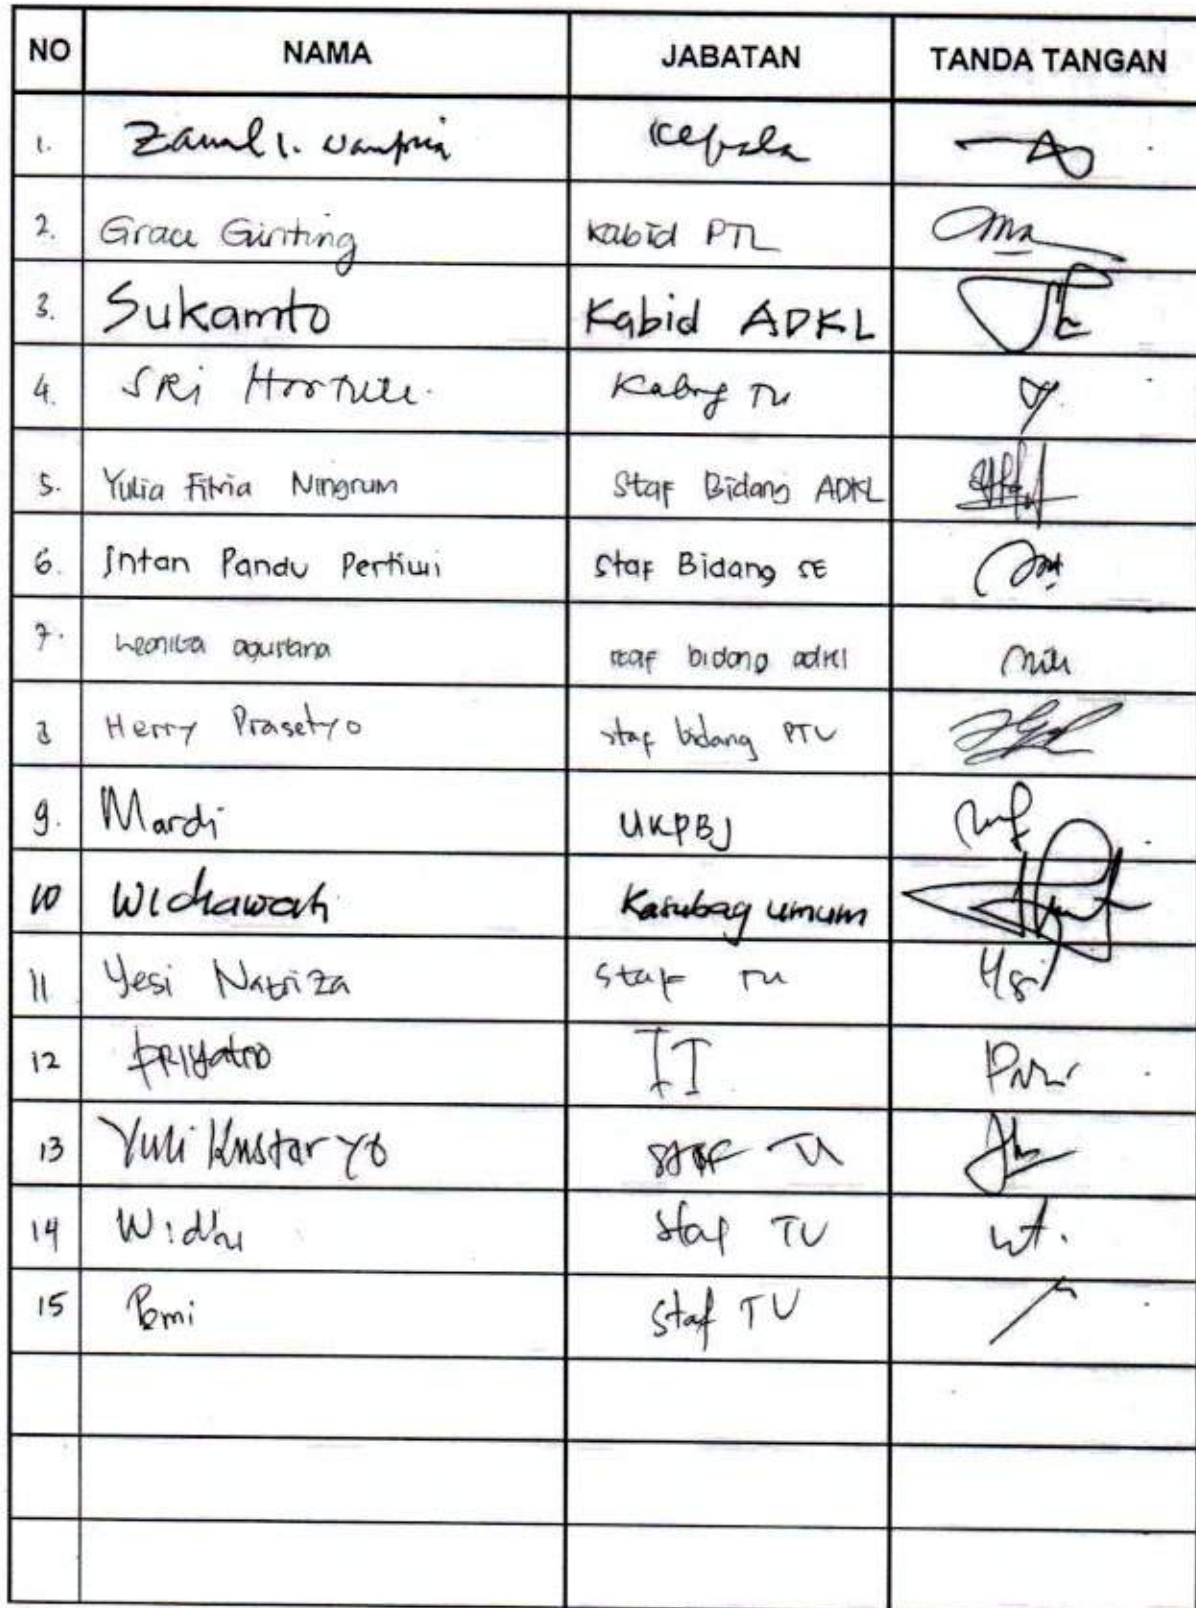 NO NAMA JABATAN TANDA TANGAN
1. Zainal I. Kepala
2. Grace Ginting Kabid PTL
3. Sukamto Kabid ADKL
4. SRi Kabag TU
5. Yulia Fitria Ningrum Staf Bidang ADKL
6. Intan Pandu Pertiwi Staf Bidang SE
7. agustana staf bidang adkl
8 Herry Prasetyo staf bidang PTL
9. Mardi UKPBJ
10 Widiawati Kasubag umum
11 Yesi Natriza Staf TU
12 PRIYatno IT
13 Yuli Kustaryo STAF TU
14 Staf TU
15 Staf TU